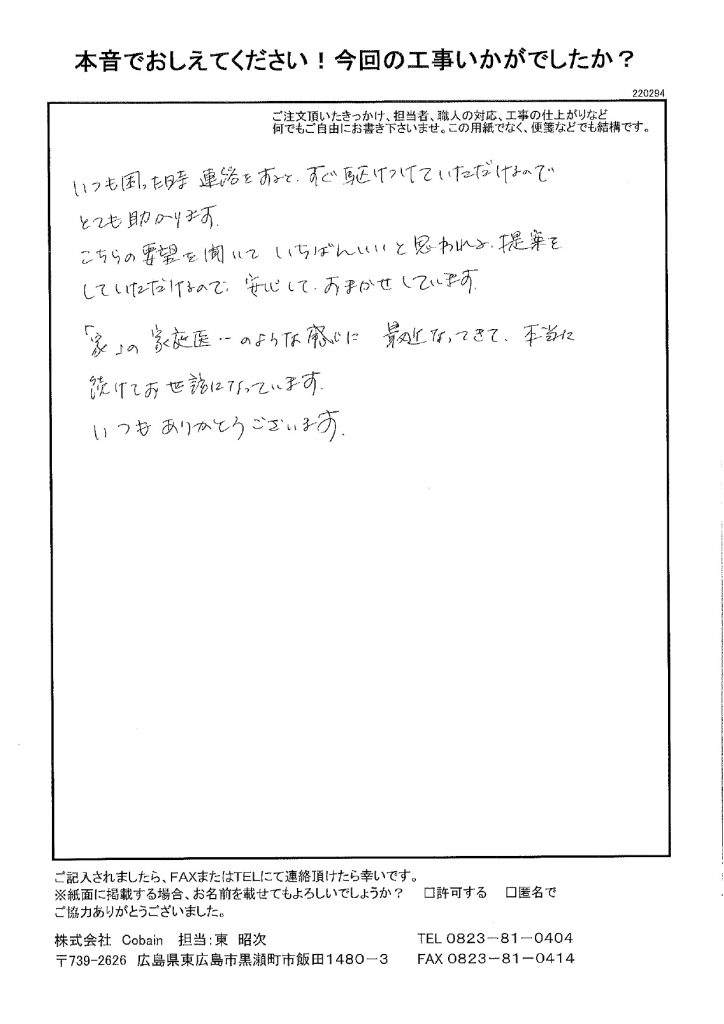 本音でおしえてください！今回の工事いかがでしたか？
220294
ご注文頂いたきっかけ、担当者、職人の対応、工事の仕上がりなど
何でもご自由にお書き下さいませ。この用紙でなく、便箋などでも結構です。
いつも困った時 連絡をすると、すぐ駆けつけていただけるので
とても助かります。
こちらの要望を聞いて いちばんいいと思われる、提案を
していただけるので、安心して、おまかせしています。
「家」の 家庭医…のような感じに 最近なってきて、本当に
続けてお世話になっています。
いつも ありがとうございます。
ご記入されましたら、FAXまたはTELにて連絡頂けたら幸いです。
※紙面に掲載する場合、お名前を載せてもよろしいでしょうか？ □許可する □匿名で
ご協力ありがとうございました。
株式会社 Cobain 担当：東 昭次 TEL 0823－81－0404
〒739-2626 広島県東広島市黒瀬町市飯田1480－3 FAX 0823－81－0414